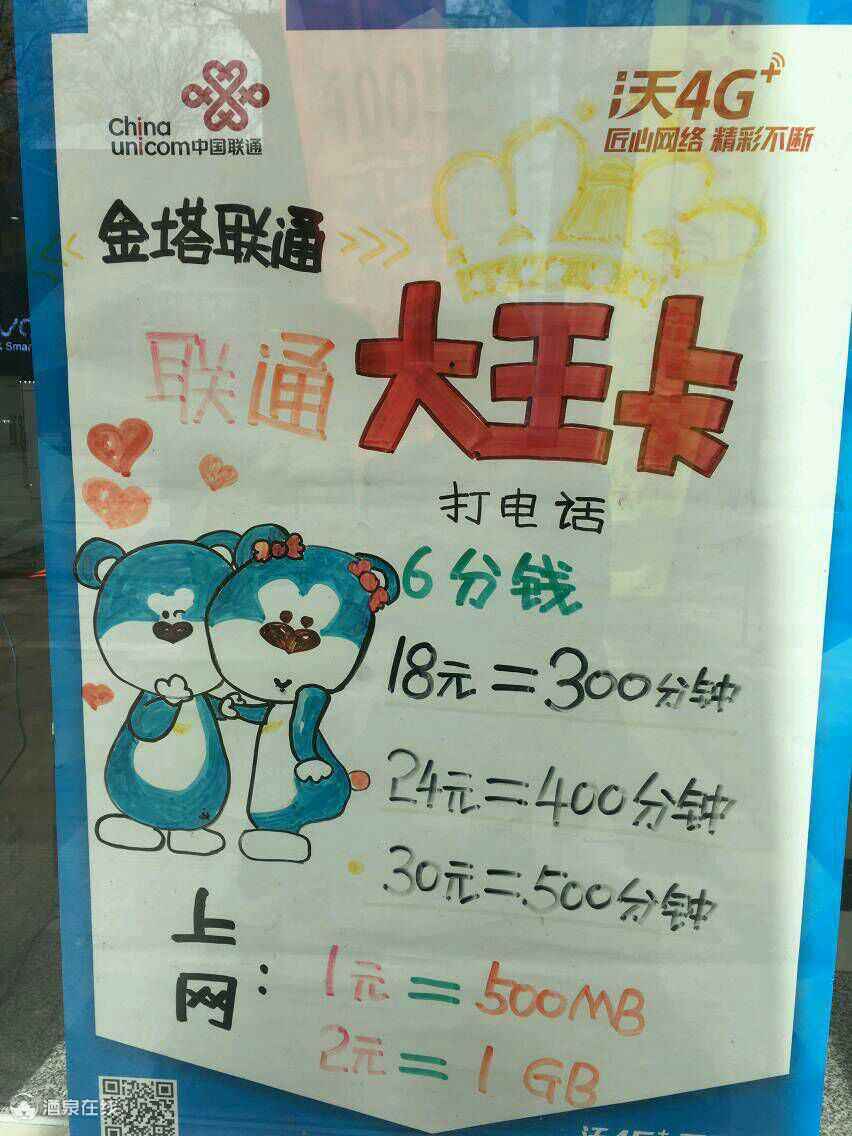 China
unicom中国联通
沃4G+
匠心网络 精彩不断
金塔联通
联通 大王卡
打电话
6分钱
18元=300分钟
24元=400分钟
30元=500分钟
上网:
1元=500MB
2元=1GB
酒泉在线